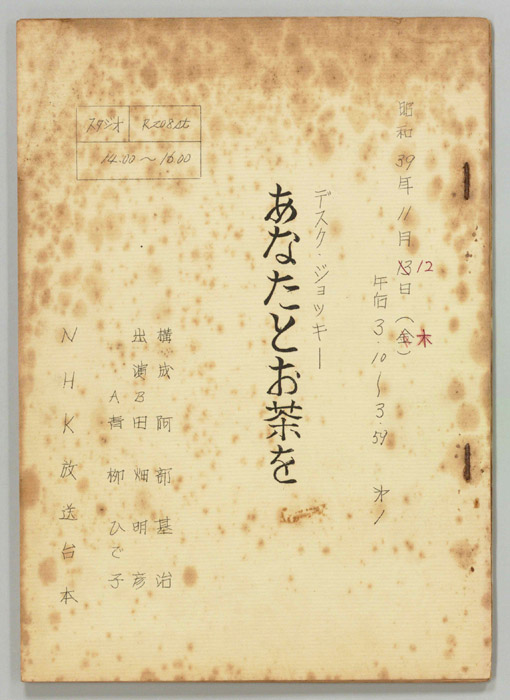 昭和39年11月13日(金) 12 木
午后3.10〜3.59 オ1
デスク・ジョッキー
あなたとお茶を
スタジオ
14.00〜16.00
構成 阿部基治
出演B田畑明彦
A青柳ひで子
NHK放送台本